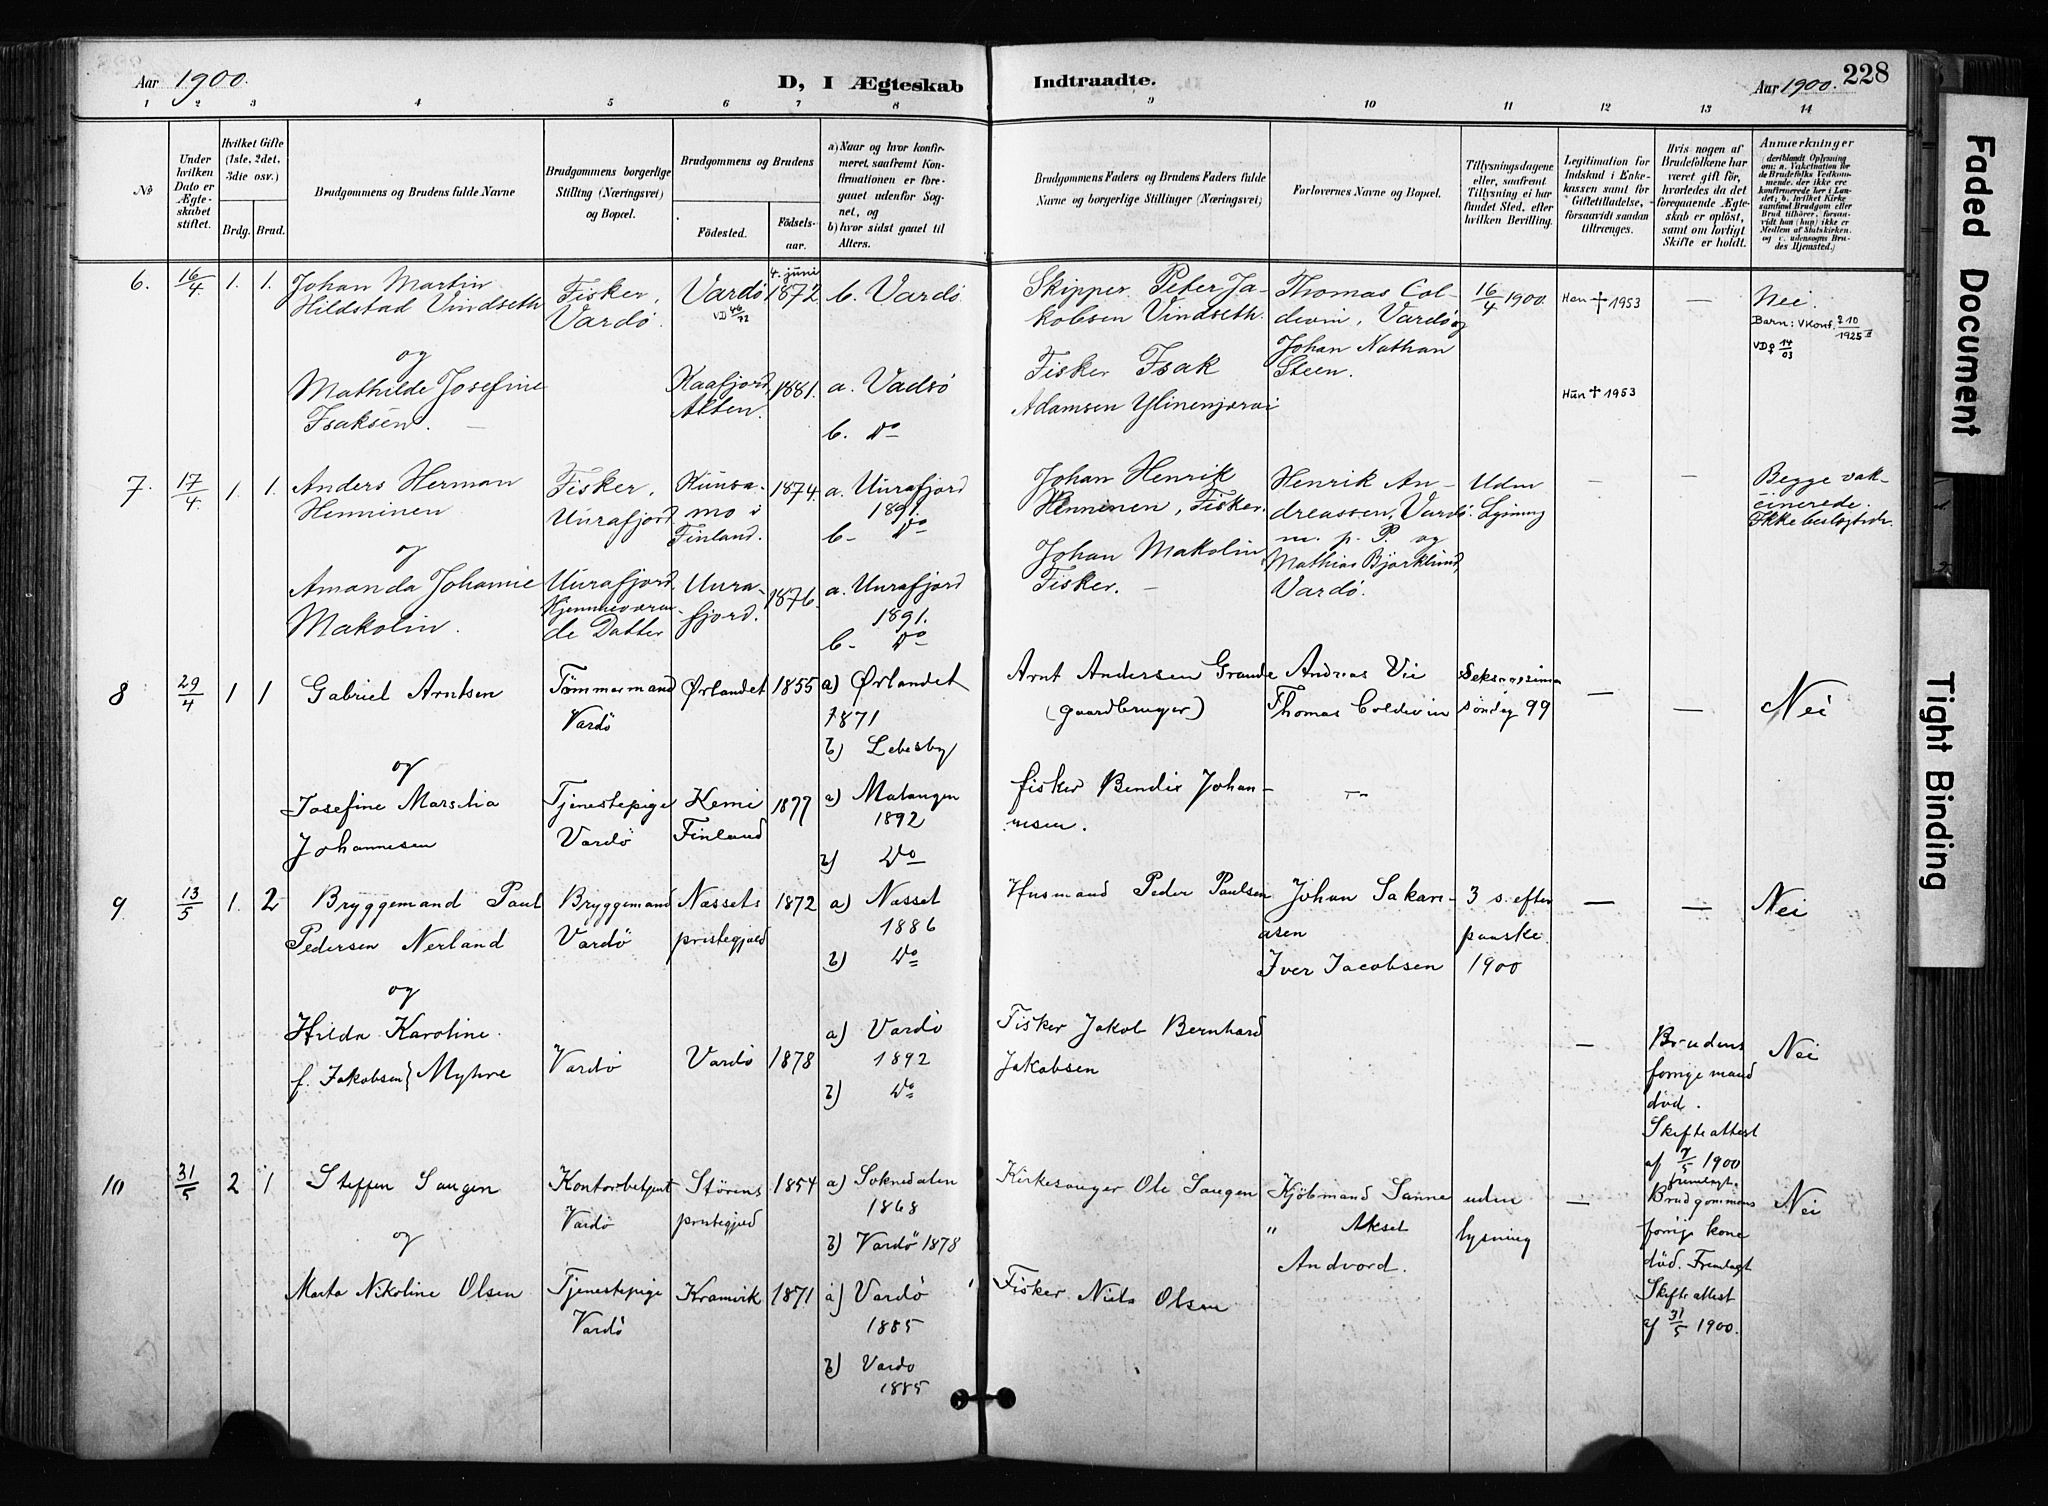 Aar 1900. D, I Ægteskab Indtraadte. Aar 1900. 228
1 2 3 4 5 6 7 8 9 10 11 12 13 14
No
Under hvilken Dato er Ægteskabet stiftet.
Hvilket Gifte (1ste, 2det, 3die osv.)
Brdg. Brud.
Brudgommens og Brudens fulde Navne
Brudgommens borgerlige Stilling (Næringsvei) og Bopæl.
Brudgommens og Brudens
Fødested.
Fødselsaar.
a) Naar og hvor konfirmeret, saafremt Konfirmationen er foregaaet udenfor Sognet, og
b) hvor sidst gaaet til Alters.
Brudgommens Faders og Brudens Faders fulde Navne og borgerlige Stillinger (Næringsvei)
Forlovernes Navne og Bopæl.
Tillysningsdagene eller, saafremt Tillysning ei har fundet Sted, efter hvilken Bevilling.
Legitimation for Indskud i Enkekassen samt for Giftetilladelse, forsaavidt saadan tiltrænges.
Hvis nogen af Brudefolkene har været gift før, hvorledes da det foregaaende Ægteskab er opløst, samt om lovligt Skifte er holdt.
Anmærkninger
(deriblandt Oplysning om: a. Vakcination for de Brudefolks Vedkommende, der ikke ere konfirmerede her i Landet; b. hvilket Kirkesamfund Brudgom eller Brud tilhører, forsaavidt han (hun) ikke er Medlem af Statskirken, og c. udensogns Brudes Hjemsted.)
6. 16/4 1. 1. Johan Martin
Hildstad Vindseth
Fisker,
Vardø.
Vardø
VD 46/72
4. juni
1872
b. Vardø
Skipper Peter Jakobsen
Vindseth.
Thomas Coldevin, Vardø og
Johan Nathan
Steen.
16/4 1900.
Han ✝ 1953
—
Nei.
Barn: VKonf. ♀ 10/1925 II
VD ♀ 14/03
og
Mathilde Josefine
Isaksen.
Kaafjord,
Alten.
1881.
a. Vadsø
b. Do
Fisker Isak
Adamsen Ylinenjærvi
Hun ✝ 1953
7. 17/4 1. 1. Anders Herman
Henninen
Fisker,
Uurafjord
Kuusamo i
Finland.
1874.
a. Uurafjord
1891.
b. Do
Johan Henrik
Henninen, Fisker.
Henrik Andreassen, Vardø.
m. p. P. og
Mathias Bjørklund,
Vardø.
Uden
Lysning
—
—
Begge vakcinerede.
Ikke beslægtede.
og
Amanda Johanne
Makolin.
Uurafjord
Hjemmeværende
Datter
Uurafjord.
1876.
a. Uurafjord
1891.
b. Do
Johan Makolin,
Fisker.
8 29/4 1 1 Gabriel Arntsen
Tømmermand
Vardø
Ørlandet
1855
a) Ørlandet
1871
b) Lebesby
Arnt Andersen Grande
(gaardbruger)
Andreas Vie
Thomas Coldevin
søndag 99
—
—
Nei
og
Josefine Marselia
Johannesen
Tjenestepige
Vardø
Kemi
Finland
1877
a) Malangen
1892
b) Do
fisker Bendix Johannesen.
9 13/5 1. 2 Bryggemand Paul
Pedersen Nerland
Bryggemand
Vardø
Næssets
prestegjæld
1872
a) Næsset
1886
b) Do
Husmand Peder Paulsen
Johan Sakariasen
Iver Jacobsen
3 s. efter
paaske
1900
—
—
Nei
og
Hilda Karoline
f. Jakobsen} Myhre
Vardø
Vardø
1878
a) Vardø
1892
b) Do
Fisker Jakob Bernhard
Jakobsen
—
Brudens
forrige mand
død.
Skifteattest
af 7/5 1900
fremlagt.
Nei
10 31/5 2 1 Steffen Saugen
Kontorbetjent
Vardø
Størens
prestegjæld
1854
a) Soknedalen
1868
b) Vardø 1878
Kirkesanger Ole Saugen
Kjøbmand Sanne
" Aksel
Andvord.
uden
lysning
—
Brudgommens
forrige kone
død. Fremlagt
Skifteattest
af 31/5 1900.
Nei
og
Marta Nikoline Olsen
Tjenestepige
Vardø
Kramvik
1871
a) Vardø
1885
b) Vardø
1885
Fisker Niels Olsen
Faded Document
Tight Binding